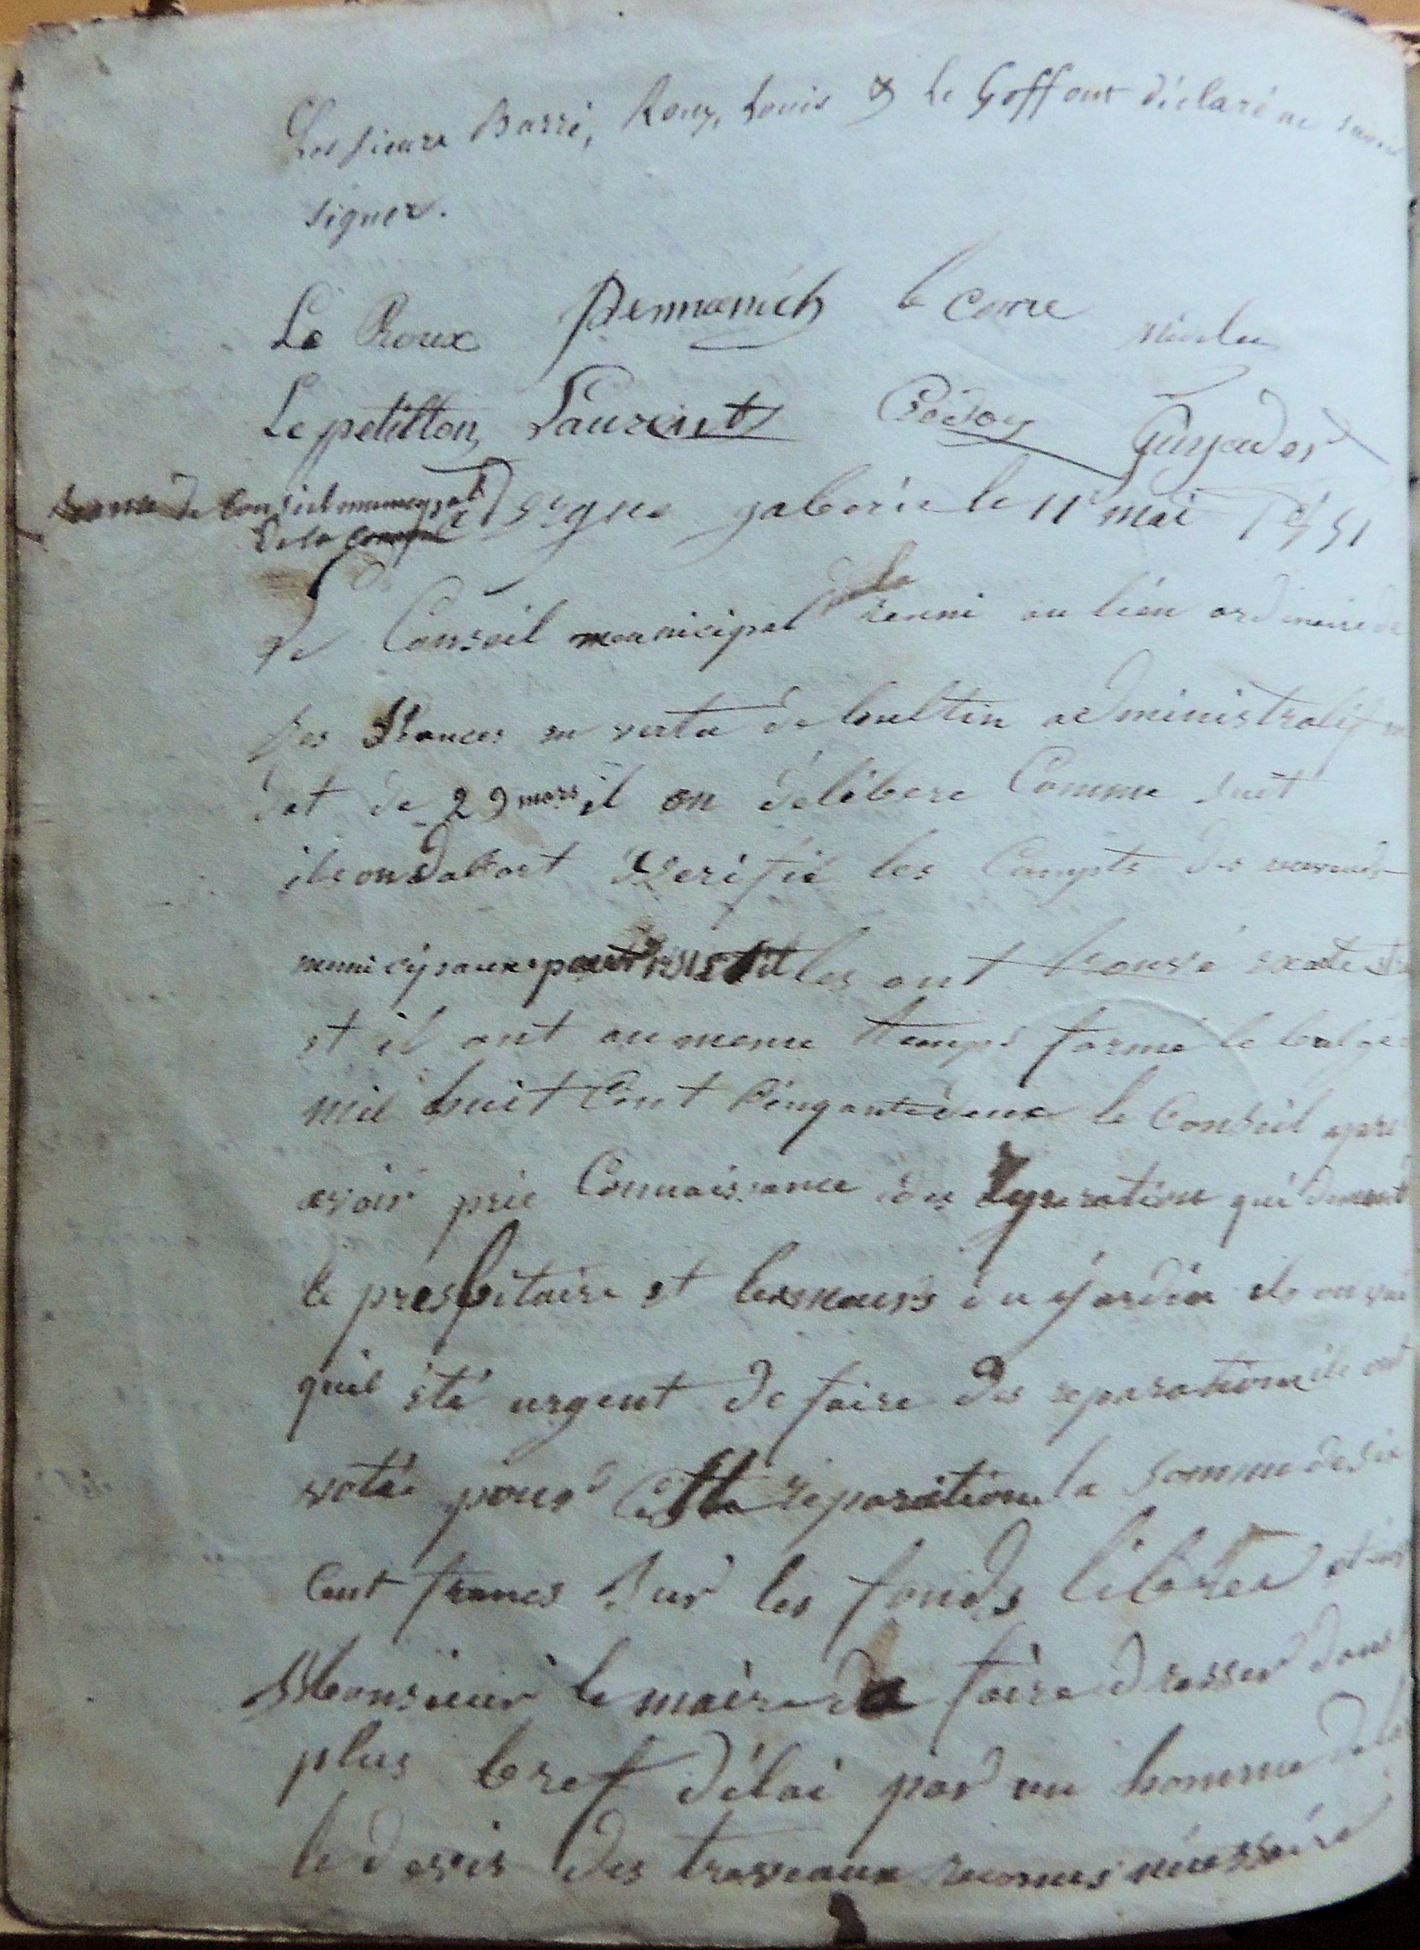 Les sieurs Barré, Rouz, Louis & Le Goff ont déclaré ne savoir
signer.
Le Roux Pennanech le corre Nicolas
Le petitton Laurent Crédou Guyader
de Conseil municipal
De la D'ergue gaberie le 11 mai 1851
Le Conseil municipal reuni au lieu ordinaire de
ses séances en vertu de bultin administratif en
dat de 29 mars il on délibere Comme suit
ils on dabort verifié les Compte des revenus
municipaux pour les ont trouvé exacte
et il ont au meme temps formé le budge
mil huit Cent Cinquantedeux le Conseil apre
avoir prie Connaissance des reparation qui demande
le presbitaire et les murs du jardin ils on vue
quil été urgent de faire des reparation ils ont
votée pour Cette reparation la somme de six
Cent francs Sur les fonds libres et
Monsieur le maire de faire dresser dans
plus bref délai par un homme de
le devis des traveaux reconus nécessaire